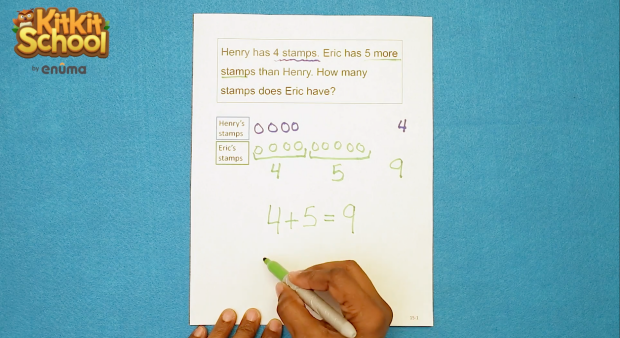 Kitkit
School
by enuma
Henry has 4 stamps. Eric has 5 more
stamps than Henry. How many
stamps does Eric have?
Henry's
stamps
4
Eric's
stamps
4 5 9
4+5=9